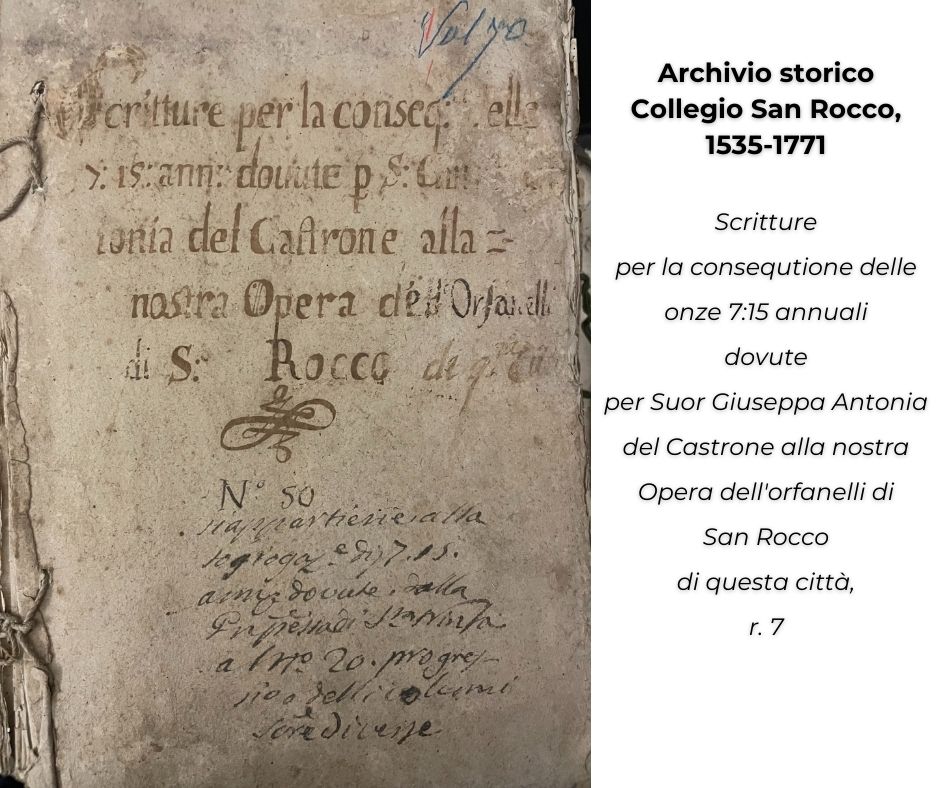 Vol 70
Scritture per la conseq: delle
7: 15: ann: dovute p S:
tonia del Castrone alla =
nostra Opera dell'Orfanelli
di S: Rocco di q.
N° 50
si appartiene alla
di 7.15.
dovute dalla

a l n° 20. progres-
sivo delli volumi
diverse
Archivio storico
Collegio San Rocco,
1535-1771
Scritture
per la consequtione delle
onze 7:15 annuali
dovute
per Suor Giuseppa Antonia
del Castrone alla nostra
Opera dell'orfanelli di
San Rocco
di questa città,
r. 7